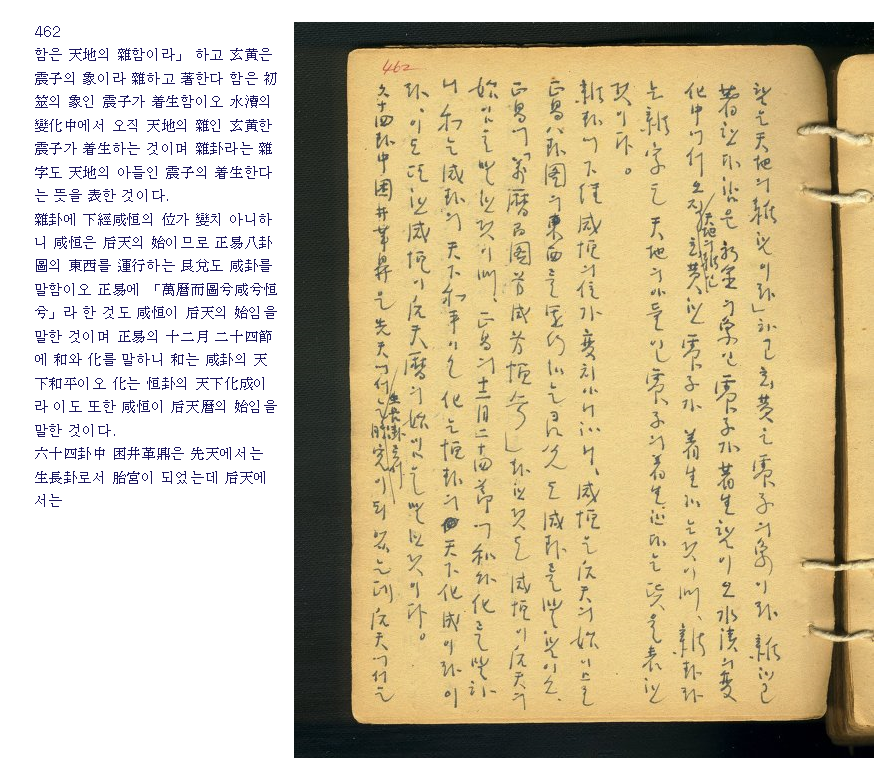 462
함은 天地의 雜함이라」 하고 玄黃은
震子의 象이라 雜하고 著한다 함은 初
筮의 象인 震子가 着生함이오 水濆의
變化中에서 오직 天地의 雜인 玄黃한
震子가 着生하는 것이며 雜卦라는 雜
字도 天地의 아들인 震子의 着生한다
는 뜻을 表한 것이다.
雜卦에 下經咸恒의 位가 變치 아니하
니 咸恒은 后天의 始이므로 正易八卦
圖의 東西를 運行하는 艮兌도 咸卦를
말함이오 正易에 「萬曆而圖兮咸兮恒
兮」라 한 것도 咸恒이 后天의 始임을
말한 것이며 正易의 十二月 二十四節
에 和와 化를 말하니 和는 咸卦의 天
下和平이오 化는 恒卦의 天下化成이
라 이도 또한 咸恒이 后天曆의 始임을
말한 것이다.
六十四卦中 困井革鼎은 先天에서는
生長卦로서 胎宮이 되었는데 后天에
서는
462
함은 天地의 雜함이라」 하고 玄黃은 震子의 象이라 雜하고
著한다 함은 初筮의 象인 震子가 着生함이오 水濆의 變
化中에서 오직 天地의 雜인 玄黃한 震子가 着生하는 것이며, 雜卦라
는 雜字도 天地의 아들인 震子의 着生한다는 뜻을 表한
것이다。
雜卦에 下經咸恒의 位가 變치 아니하니, 咸恒은 后天의 始이므로
正易八卦圖의 東西를 運行하는 艮兌도 咸卦를 말함이오,
正易에「萬曆而圖兮咸兮恒兮」라 한 것도 咸恒이 后天의
始임을 말한 것이며, 正易의 十二月二十四節에 和와 化를 말하
니 和는 咸卦의 天下和平이오 化는 恒卦의 天下化成이라 이
라, 이도 또한 咸恒이 后天曆의 始임을 말한 것이다。
六十四卦中 困井革鼎은 先天에서는 生長卦로서 胎宮이 되었는데 后天에서는